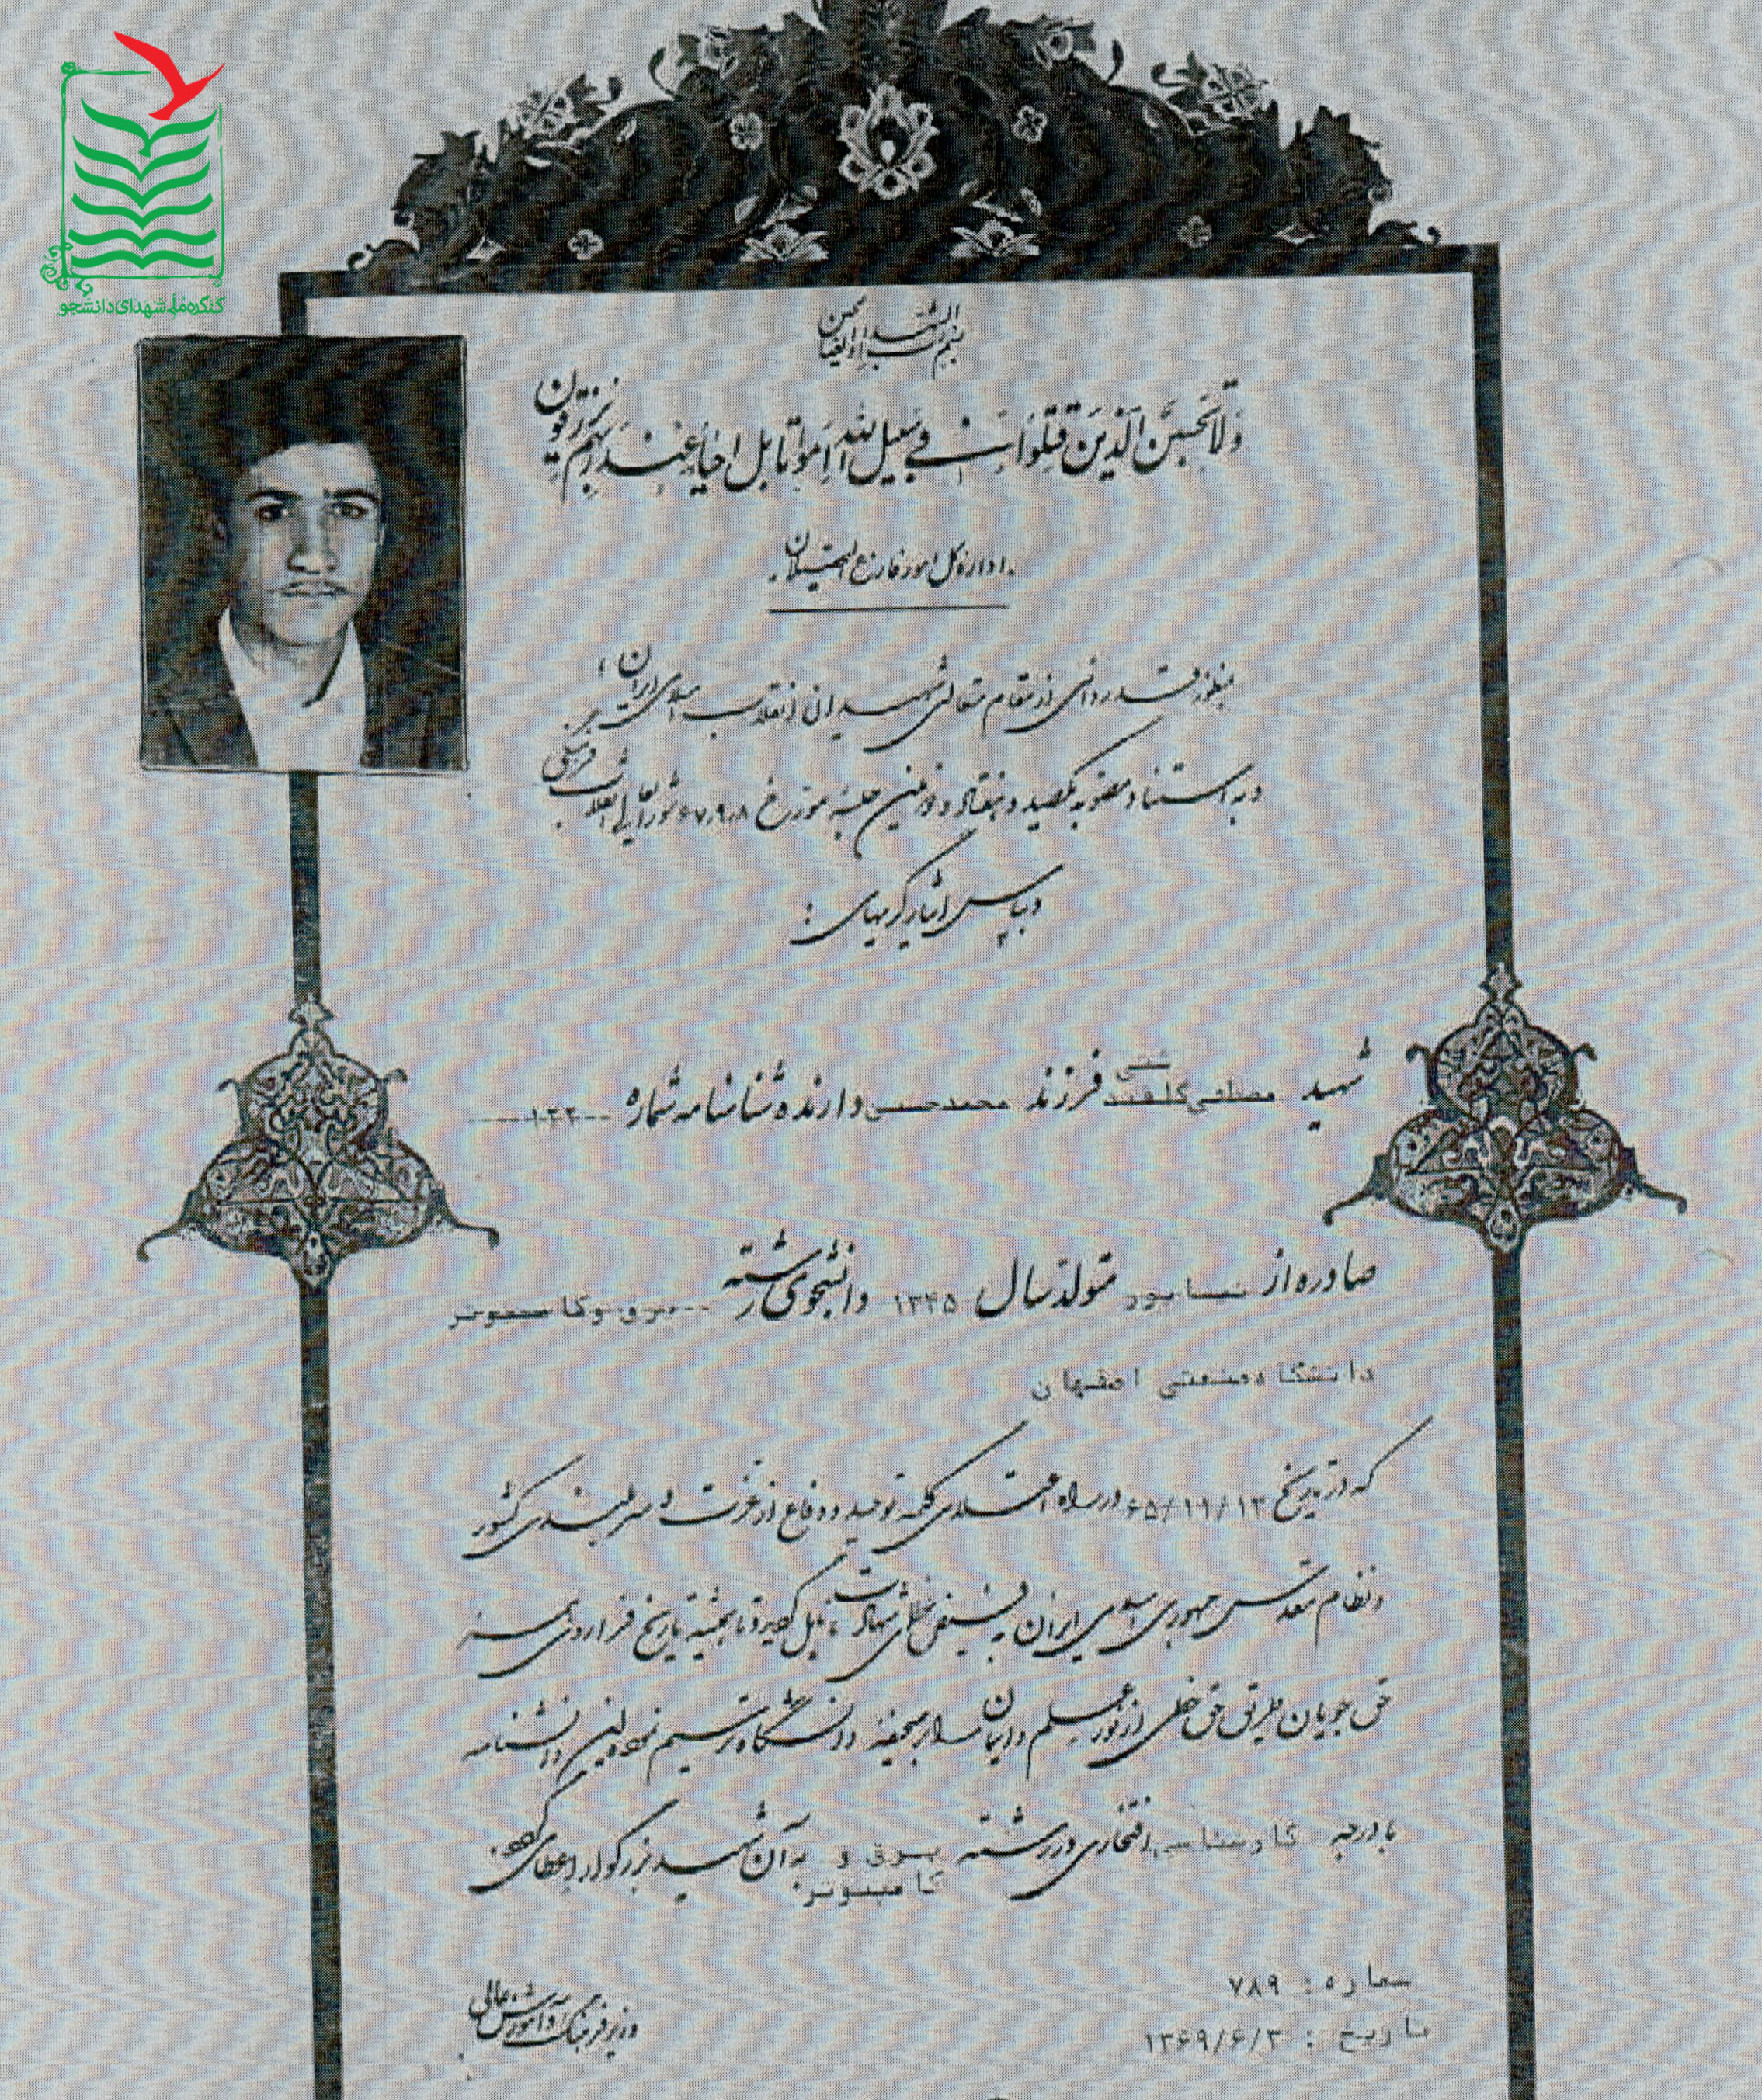 کنگره ملی شهدای دانشجو
بسم رب الشهداء و الصالحین
وَلا تَحسَبَنَّ الَّذینَ قُتِلوا فی سَبیلِ اللهِ اَمواتا بَل اَحیاءٌ عِندَ رَبِّهِم یُرزَقون
اداره کل امور فارغ التحصیلان
بمنظور قدردانی از مقام متعالی شهیدان انقلاب اسلامی ایران ،
و به استناد مصوبه یکصد و هفتاد و دومین جلسه مورخ ۶۷٫۹٫۸ شورایعالی انقلاب فرهنگی
و بپاس ایثارگریهای :
شهید مصطفی فرزند محمدحسن دارنده شناسنامه شماره ۱۲۲
صادره از نیشابور متولد سال ۱۳۴۵ دانشجوی رشته برق و کامپیوتر
دانشگاه صنعتی اصفهان
که در تاریخ ۶۵/۱۱/۱۳ در راه اعتلای کلمه توحید و دفاع از عزت و سربلندی کشور
و نظام مقدس جمهوری اسلامی ایران به فیض عظمای شهادت نایل گردید و تا همیشه تاریخ فرا روی همه
حق جویان طریق حق خطی از نور علم و ایمان بر صحیفه دانشگاه ترسیم نمود این دانشنامه
با درجه کارشناسی افتخاری در رشته برق و کامپیوتر به آن شهید بزرگوار اعطا می گردد.
شماره : ۷۸۹
تاریخ : ۱۳۶۹/۶/۳
وزیر فرهنگ و آموزش عالی